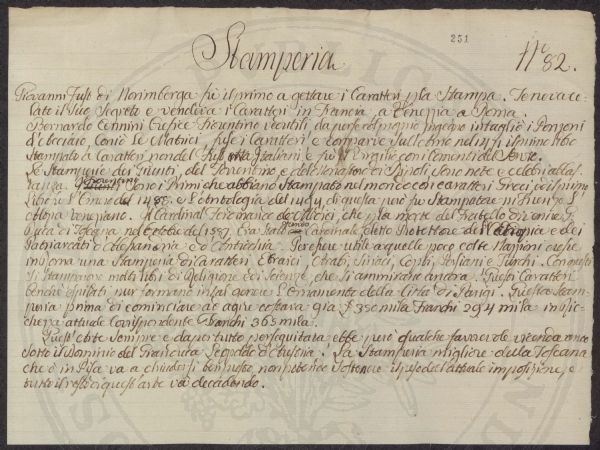 251
Stamperia
N° 82.
Giovanni Fust di Norimberga fù il primo a gettare i Caratteri p la Stampa. Teneva ce-
lato il Suo Segreto e vendeva i Caratteri in Francia, a Venezia a Roma.
Bernardo Cennini Orefice Fiorentino i e col proprio ingegno intagliò i Ponzoni
d'acciaio, Coniò le Matrici, fuse i Caratteri e Sull' Arno nel 1471 il primo libro
Stampato a Caratteri non del Italiani e fù Virgilio con i Comenti del Servio.
Le Stamperie dei Giunti, del Torrentino, e del Monastero di Ripoli Sono note e celebri abbas-
tanza. Sono i Primi che abbiano Stampato nel mondo con caratteri Greci, ed il primo
Libro è l'Omero del 1488. e l'Antologia del 1494, di questa però fu Stampatore in Firenze L.
Alopa veneziano. Il Cardinal Ferdinando de Medici, che p la morte del Fratello divenne G.
Duca di Toscana nel Ottobre del 1587. Era Stato Cardinale, detto Protettore della Religione e dei
Patriarcati d'Alessandria e d'Antiochia. Per essere utile a quelle poco colte Nazioni eresse
in Roma una Stamperia di caratteri Ebraici, Arabi, Siriaci, Copti, Persiani e Turchi. Con questi
Si Stamparono molti libri di Religione e di Scienze, che Si ammirano ancora. Questi Caratteri
benche formano in Sal l'Ornamento della Città di Parigi. Questa Stam-
peria prima di cominciare ad agire costava già 350 mila Franchi 294 mila in
attuale Corrispondente Franchi 365 mila.
Quest'arte Sempre e da per tutto perseguitata ebbe però qualche favorevole vicenda anco
Sotto il Dominio del Francesco Leopoldo d'Austria. La Stamperia migliore della Toscana
che è in Pisa va a chiudersi ben presto non potendo Sostenere il peso dell'attuale imposizione, e
tutto il resto di quest'arte và decadendo.